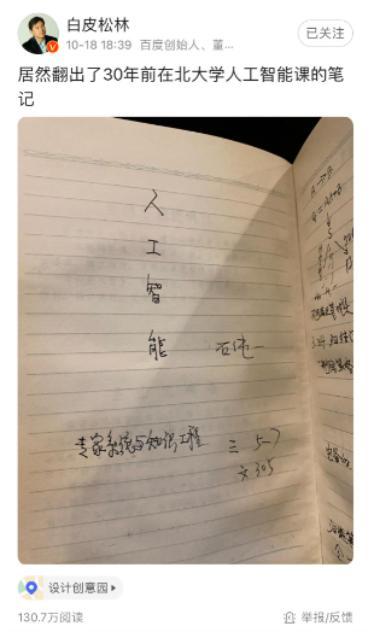 白皮松林
10-18 18:39 百度创始人、董...
已关注
居然翻出了30年前在北大学人工智能课的笔
记
人
工
智
能 石纯一
专家系统与知识工程 三 5-7
文 305
设计创意园
130.7万阅读
举报/反馈